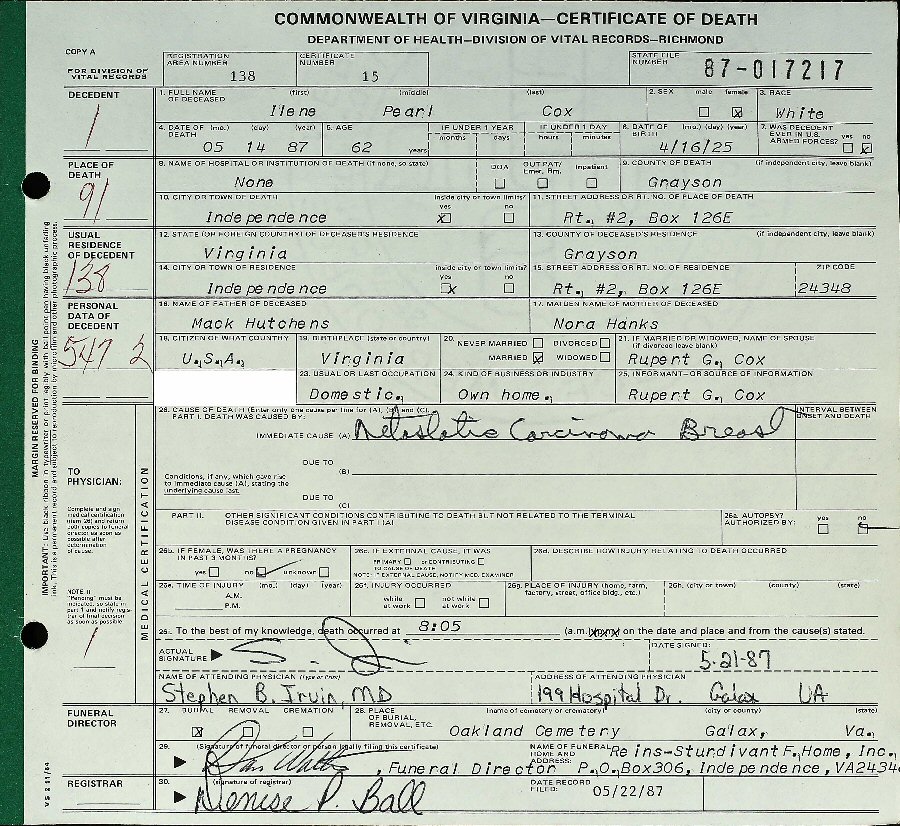 COMMONWEALTH OF VIRGINIA—CERTIFICATE OF DEATH
DEPARTMENT OF HEALTH—DIVISION OF VITAL RECORDS—RICHMOND
COPY A
FOR DIVISION OF VITAL RECORDS
REGISTRATION AREA NUMBER 138
CERTIFICATE NUMBER 15
STATE FILE NUMBER 87-017217
DECEDENT
1
1. FULL NAME OF DECEASED (first) (middle) (last)
Ilene Pearl Cox
2. SEX male female X
3. RACE White
4. DATE OF DEATH (mo.) (day) (year) 05 14 87
5. AGE 62 years
IF UNDER 1 YEAR months days
IF UNDER 1 DAY hours minutes
6. DATE OF BIRTH (mo.) (day) (year) 4/16/25
7. WAS DECEDENT EVER IN U.S. ARMED FORCES? yes no X
PLACE OF DEATH
91
8. NAME OF HOSPITAL OR INSTITUTION OF DEATH (if none, so state)
None
DOA OUTPAT/Emer. Rm. Inpatient
9. COUNTY OF DEATH (if independent city, leave blank)
Grayson
10. CITY OR TOWN OF DEATH inside city or town limits? yes X no
Independence
11. STREET ADDRESS OR RT. NO. OF PLACE OF DEATH
Rt. #2, Box 126E
USUAL RESIDENCE OF DECEDENT
138
12. STATE (OR FOREIGN COUNTRY) OF DECEASED'S RESIDENCE
Virginia
13. COUNTY OF DECEASED'S RESIDENCE (if independent city, leave blank)
Grayson
14. CITY OR TOWN OF RESIDENCE inside city or town limits? yes X no
Independence
15. STREET ADDRESS OR RT. NO. OF RESIDENCE
Rt. #2, Box 126E
ZIP CODE 24348
PERSONAL DATA OF DECEDENT
547 2
16. NAME OF FATHER OF DECEASED
Mack Hutchens
17. MAIDEN NAME OF MOTHER OF DECEASED
Nora Hanks
18. CITIZEN OF WHAT COUNTRY
U.S.A.
19. BIRTHPLACE (state or country)
Virginia
20. NEVER MARRIED DIVORCED
MARRIED X WIDOWED
21. IF MARRIED OR WIDOWED, NAME OF SPOUSE (if divorced leave blank)
Rupert G. Cox
23. USUAL OR LAST OCCUPATION
Domestic.
24. KIND OF BUSINESS OR INDUSTRY
Own home.
25. INFORMANT—OR SOURCE OF INFORMATION
Rupert G. Cox
MARGIN RESERVED FOR BINDING
TO PHYSICIAN:
Complete and sign medical certification (item 26) and return both copies to funeral director as soon as possible after determination of cause.
NOTE: If "Pending" must be indicated, so state in part 1 and notify registrar of final decision as soon as possible
1
MEDICAL CERTIFICATION
26. CAUSE OF DEATH (Enter only one cause per line for (A), (B) and (C).
PART I. DEATH WAS CAUSED BY:
INTERVAL BETWEEN ONSET AND DEATH
IMMEDIATE CAUSE (A) Metastatic Carcinoma Breast
DUE TO
(B)
Conditions, if any, which gave rise to immediate cause (A), stating the underlying cause last.
DUE TO
(C)
PART II. OTHER SIGNIFICANT CONDITIONS CONTRIBUTING TO DEATH BUT NOT RELATED TO THE TERMINAL DISEASE CONDITION GIVEN IN PART I(A)
26a. AUTOPSY? AUTHORIZED BY: yes no
26b. IF FEMALE, WAS THERE A PREGNANCY IN PAST 3 MONTHS?
yes no unknown
26c. IF EXTERNAL CAUSE, IT WAS
PRIMARY or CONTRIBUTING
TO CAUSE OF DEATH
NOTE: IF EXTERNAL CAUSE, NOTIFY MED. EXAMINER
26d. DESCRIBE HOW INJURY RELATING TO DEATH OCCURRED
26e. TIME OF INJURY (mo.) (day) (year)
A.M.
P.M.
26f. INJURY OCCURRED
while at work not while at work
26g. PLACE OF INJURY (home, farm, factory, street, office bldg., etc.)
26h. (city or town) (county) (state)
26i. To the best of my knowledge, death occurred at 8:05 (a.m. xxxx) on the date and place and from the cause(s) stated.
ACTUAL SIGNATURE
DATE SIGNED: 5-21-87
NAME OF ATTENDING PHYSICIAN (Type or Print)
Stephen B. Irvin, MD
ADDRESS OF ATTENDING PHYSICIAN
199 Hospital Dr. Galax VA
FUNERAL DIRECTOR
27. BURIAL X REMOVAL CREMATION
28. PLACE OF BURIAL, REMOVAL, ETC. (name of cemetery or crematory) (city or county) (state)
Oakland Cemetery Galax, Va.
29. (Signature of funeral director or person legally filing this certificate)
, Funeral Director
NAME OF FUNERAL HOME AND ADDRESS:
Reins-Sturdivant F. Home, Inc.
P.O. Box 306, Independence, VA 2434
REGISTRAR
30. (signature of registrar)
Denise P. Ball
DATE RECORD FILED: 05/22/87
VS 2 11/84